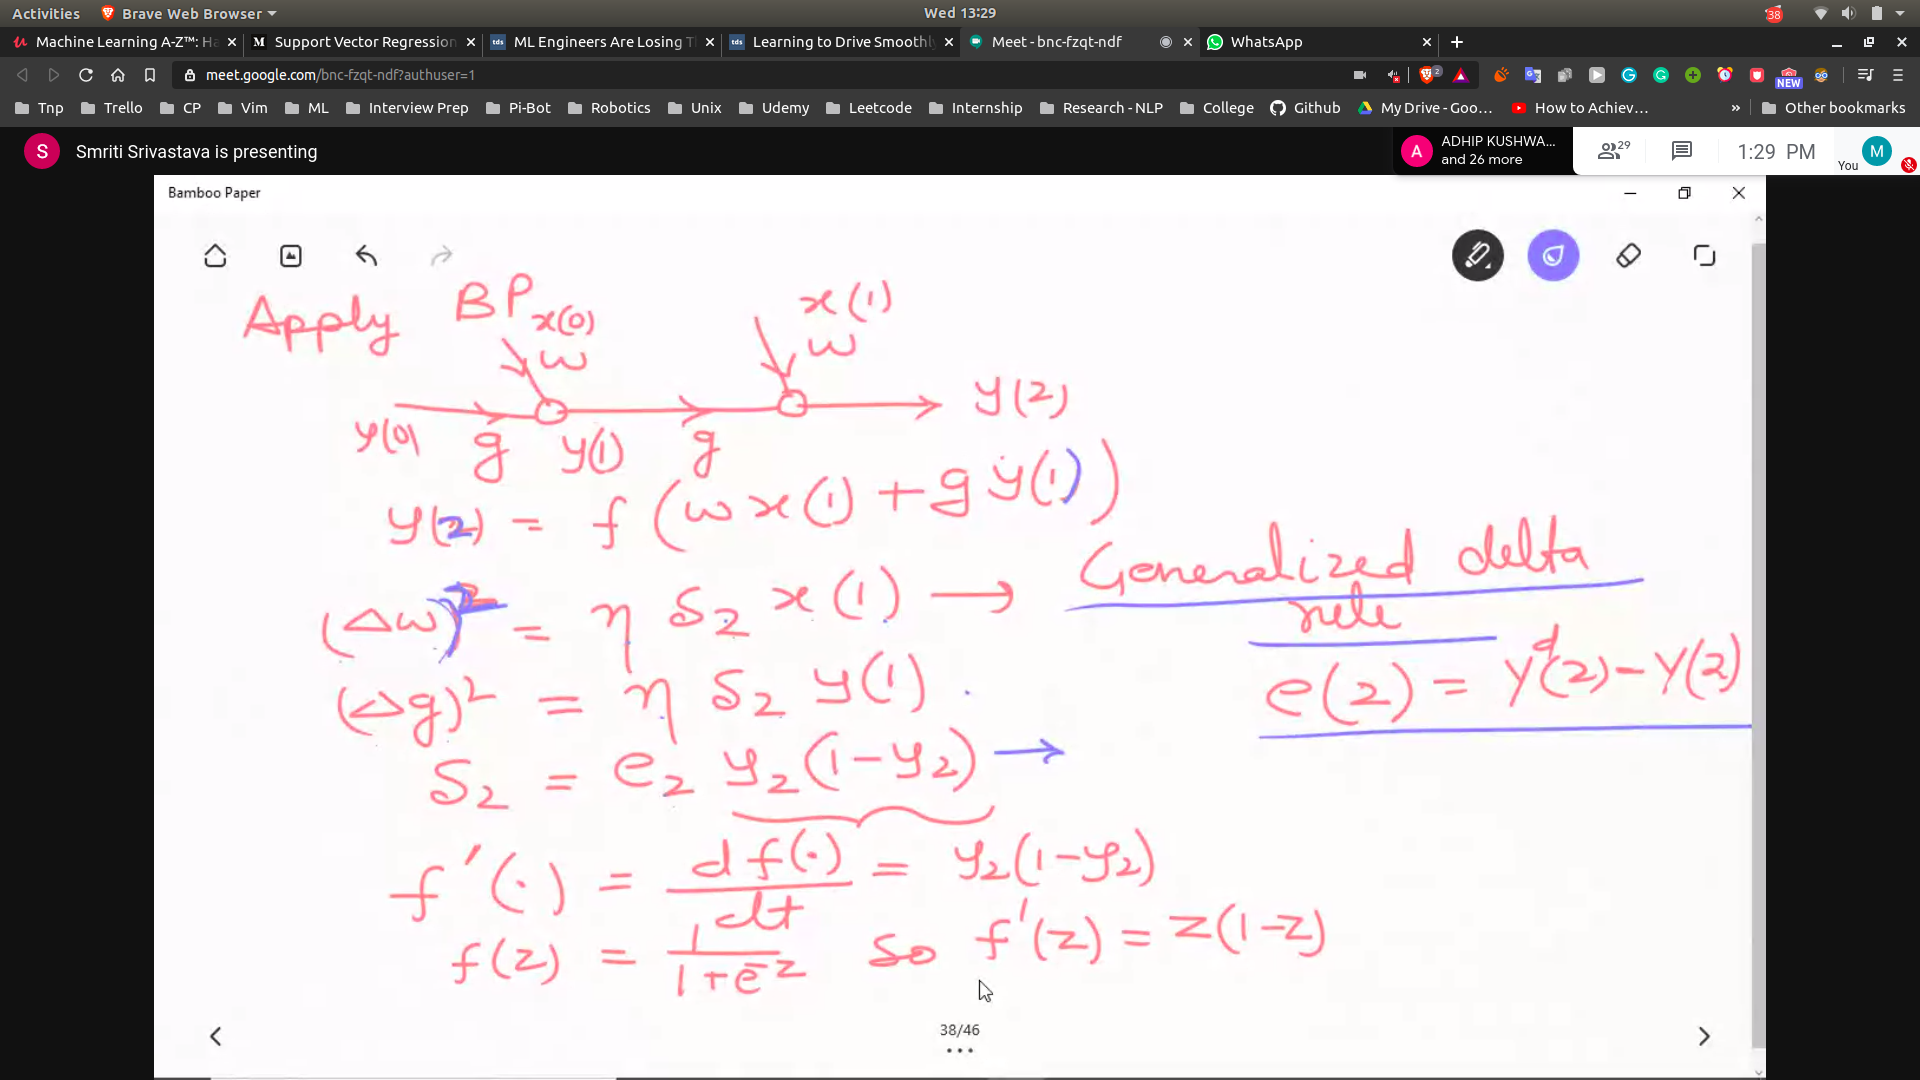 Activities Brave Web Browser Wed 13:29 38
Machine Learning A-Z™: Ha Support Vector Regression ML Engineers Are Losing T Learning to Drive Smoothly Meet - bnc-fzqt-ndf WhatsApp
meet.google.com/bnc-fzqt-ndf?authuser=1 2 NEW
Tnp Trello CP Vim ML Interview Prep Pi-Bot Robotics Unix Udemy Leetcode Internship Research - NLP College Github My Drive - Goo… How to Achiev… » Other bookmarks
S Smriti Srivastava is presenting A ADHIP KUSHWA... and 26 more 29 1:29 PM You M
Bamboo Paper
Apply BP x(0) x(1)
w w
y(0) g y(1) g y(2)
y(2) = f(wx(1)+gy(1))
(Δw)² = η δ₂ x(1) → Generalized delta rule
e(2) = Y^d(2) - Y(2)
(Δg)² = η δ₂ y(1)
δ₂ = e₂ y₂(1-y₂) →
f'(.) = df(.)/dt = y₂(1-y₂)
f(z) = 1/(1+e^-z) so f'(z) = z(1-z)
38/46